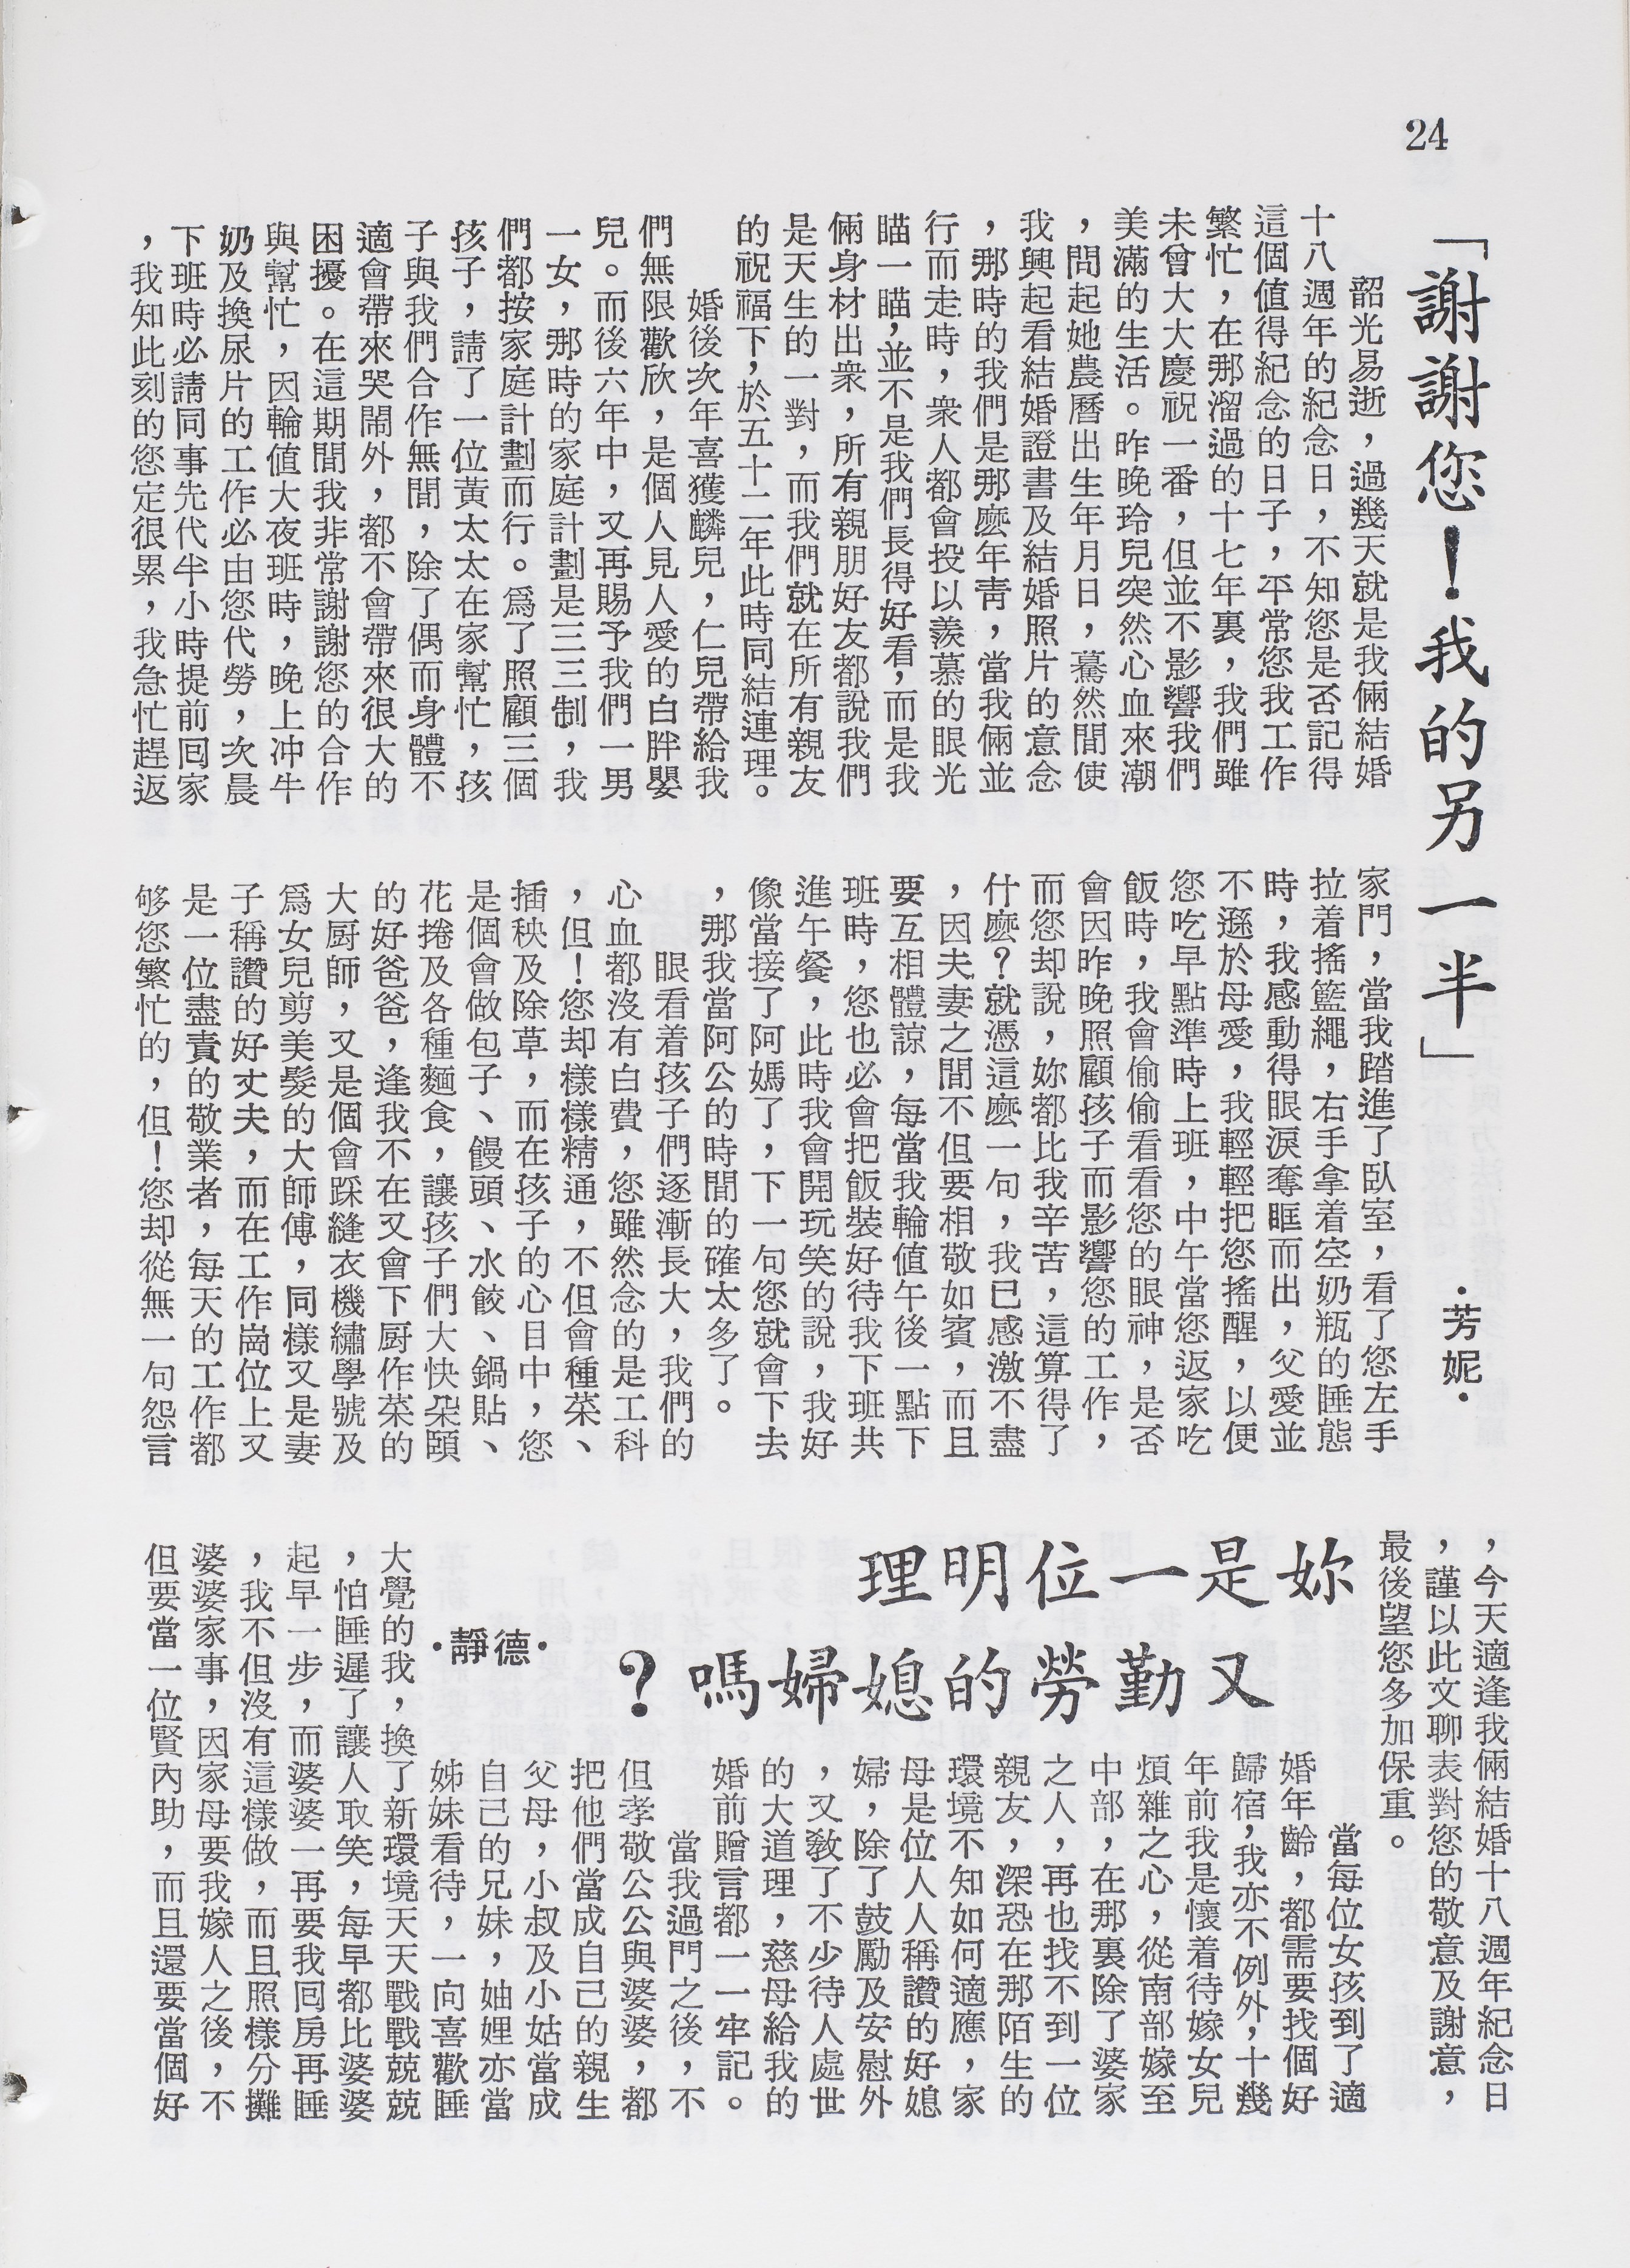 24
「謝謝您！我的另一半」
・芳妮・
韶光易逝，過幾天就是我倆結婚
十八週年的紀念日，不知您是否記得
這個值得紀念的日子，平常您我工作
繁忙，在那溜過的十七年裏，我們雖
未曾大大慶祝一番，但並不影響我們
美滿的生活。昨晚玲兒突然心血來潮
，問起她農曆出生年月日，驀然間使
我興起看結婚證書及結婚照片的意念
，那時的我們是那麼年青，當我倆並
行而走時，衆人都會投以羨慕的眼光
瞄一瞄，並不是我們長得好看，而是我
倆身材出衆，所有親朋好友都說我們
是天生的一對，而我們就在所有親友
的祝福下，於五十二年此時同結連理。
婚後次年喜獲麟兒，仁兒帶給我
們無限歡欣，是個人見人愛的白胖嬰
兒。而後六年中，又再賜予我們一男
一女，那時的家庭計劃是三三制，我
們都按家庭計劃而行。爲了照顧三個
孩子，請了一位黃太太在家幫忙，孩
子與我們合作無間，除了偶而身體不
適會帶來哭鬧外，都不會帶來很大的
困擾。在這期間我非常謝謝您的合作
與幫忙，因輪值大夜班時，晚上冲牛
奶及換尿片的工作必由您代勞，次晨
下班時必請同事先代半小時提前囘家
，我知此刻的您定很累，我急忙趕返
家門，當我踏進了臥室，看了您左手
拉着搖籃繩，右手拿着空奶瓶的睡態
時，我感動得眼淚奪眶而出，父愛並
不遜於母愛，我輕輕把您搖醒，以便
您吃早點準時上班，中午當您返家吃
飯時，我會偷偷看看您的眼神，是否
會因昨晚照顧孩子而影響您的工作，
而您却說，妳都比我辛苦，這算得了
什麼？就憑這麼一句，我已感激不盡
，因夫妻之間不但要相敬如賓，而且
要互相體諒，每當我輪值午後一點下
班時，您也必會把飯裝好待我下班共
進午餐，此時我會開玩笑的說，我好
像當接了阿媽了，下一句您就會下去
，那我當阿公的時間的確太多了。
眼看着孩子們逐漸長大，我們的
心血都沒有白費，您雖然念的是工科
，但！您却樣樣精通，不但會種菜、
插秧及除草，而在孩子的心目中，您
是個會做包子、饅頭、水餃、鍋貼、
花捲及各種麵食，讓孩子們大快朶頤
的好爸爸，逢我不在又會下厨作菜的
大厨師，又是個會踩縫衣機繡學號及
爲女兒剪美髮的大師傅，同樣又是妻
子稱讚的好丈夫，而在工作崗位上又
是一位盡責的敬業者，每天的工作都
够您繁忙的，但！您却從無一句怨言
，今天適逢我倆結婚十八週年紀念日
，謹以此文聊表對您的敬意及謝意，
最後望您多加保重。
妳是一位明理
又勤勞的媳婦嗎？
・德靜・
當每位女孩到了適
婚年齡，都需要找個好
歸宿，我亦不例外，十幾
年前我是懷着待嫁女兒
煩雜之心，從南部嫁至
中部，在那裏除了婆家
之人，再也找不到一位
親友，深恐在那陌生的
環境不知如何適應，家
母是位人人稱讚的好媳
婦，除了鼓勵及安慰外
，又敎了不少待人處世
的大道理，慈母給我的
婚前贈言都一一牢記。
當我過門之後，不
但孝敬公公與婆婆，都
把他們當成自己的親生
父母，小叔及小姑當成
自己的兄妹，妯娌亦當
姊妹看待，一向喜歡睡
大覺的我，換了新環境天天戰戰兢兢
，怕睡遲了讓人取笑，每早都比婆婆
起早一步，而婆婆一再要我囘房再睡
，我不但沒有這樣做，而且照樣分攤
婆婆家事，因家母要我嫁人之後，不
但要當一位賢內助，而且還要當個好